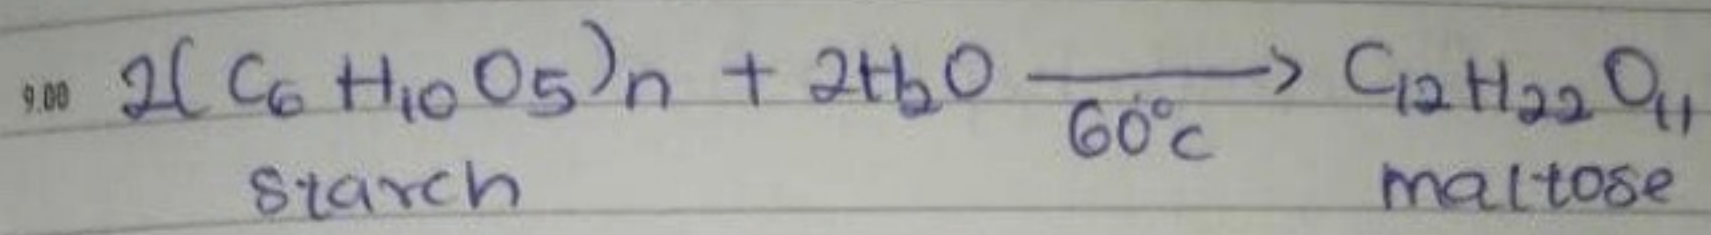 9.00 2(C6H10O5)n + 2H2O → C12H22O11
60°C
starch maltose